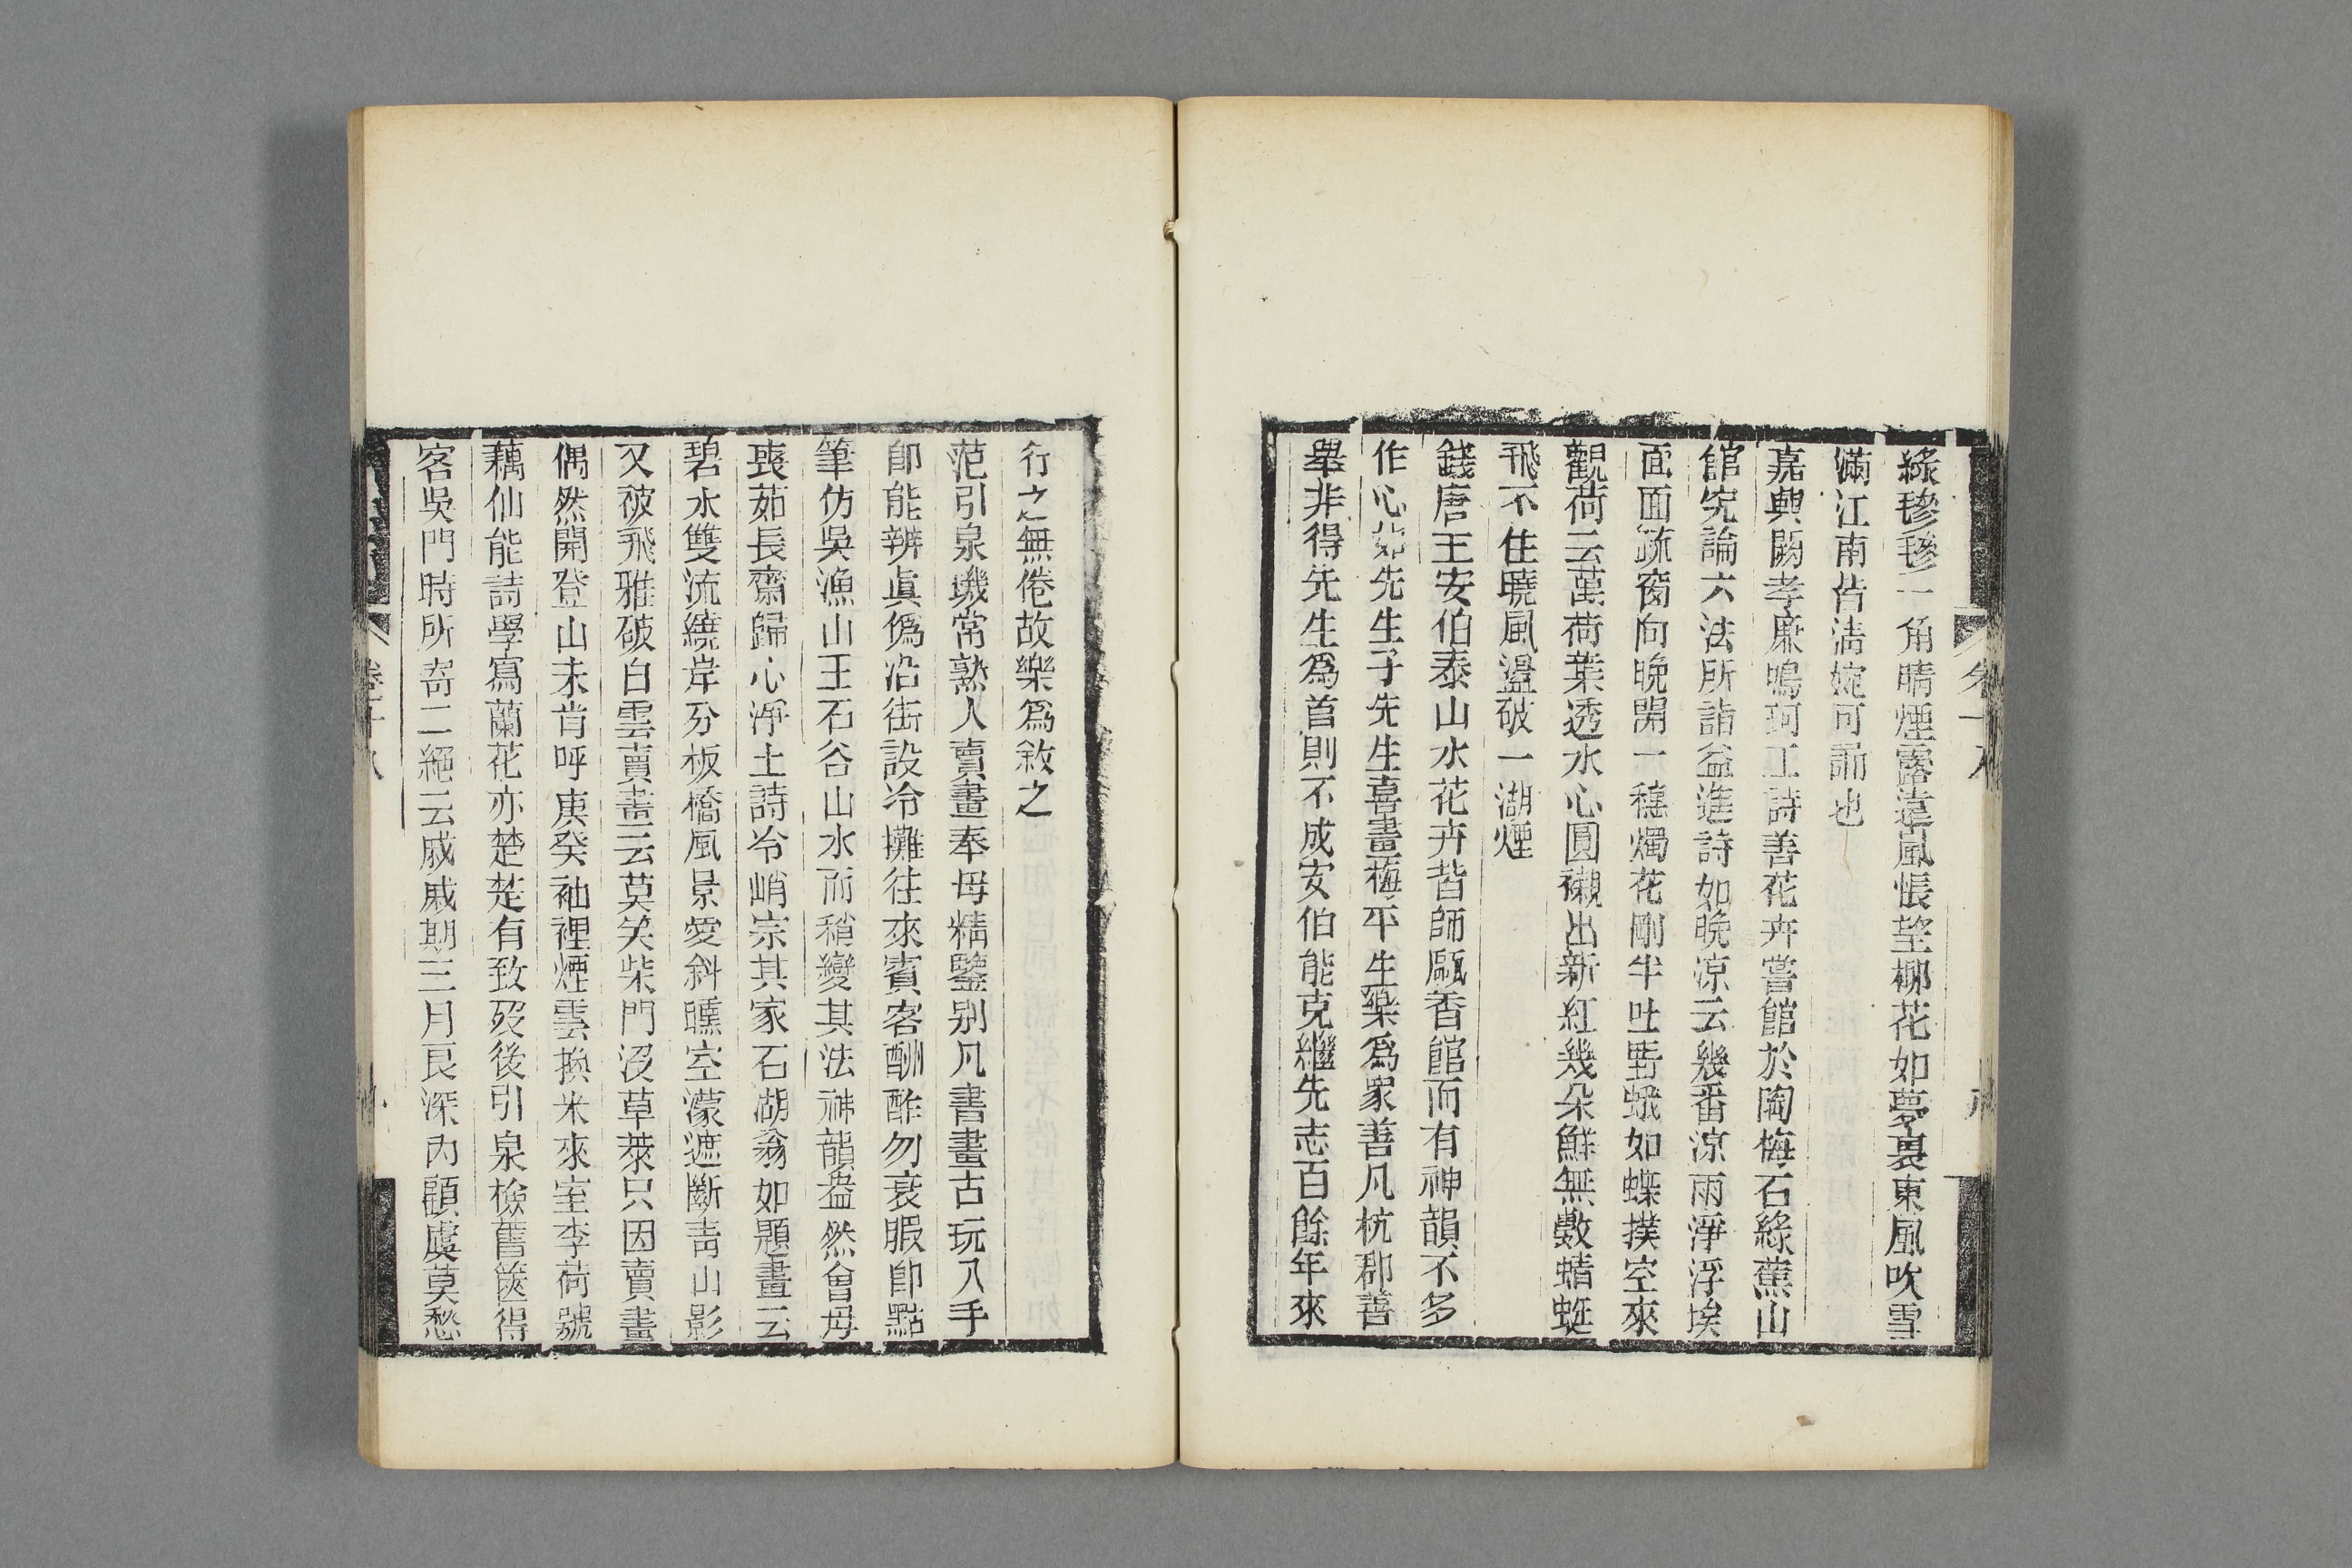 綠毵毵一角晴煙露遠嵐悵望柳花如夢裏東風吹雪
滿江南皆淸婉可誦也
嘉興闕孝廉鳴珂工詩善花卉嘗館於陶梅石綠蕉山
館究論六法所詣益進詩如晩凉云幾番涼雨淨浮埃
面面疏窗向晚開一穗燭花剛半吐野蛾如蝶撲空來
觀荷云萬荷葉透水心圓襯出新紅幾朶鮮無數蜻蜓
飛不住曉風盪破一湖煙
錢唐王安伯泰山水花卉皆師甌香館而有神韻不多
作心如先生子先生喜畫梅平生樂爲家善凡杭郡善
舉非得先生爲首則不成安伯能克繼先志百餘年來
卷十八
行之無倦故樂爲敘之
范引泉璣常熟人賣畫奉母精鑒别凡書畫古玩入手
卽能辨眞僞沿街設冷攤往來賓客酬酢勿衰暇卽點
筆仿吳漁山王石谷山水而稍變其法神韻盎然會母
喪茹長齋歸心淨土詩冷峭宗其家石湖翁如題畫云
碧水雙流繞岸分板橋風景愛斜曛空濛遮斷靑山影
又被飛雅破白雲賣畫云莫笑柴門沒草萊只因賣畫
偶然開登山未肯呼庚癸袖裡煙雲換米來室李荷號
藕仙能詩學寫蘭花亦楚楚有致歿後引泉檢舊篋得
客吳門時所寄二絕云戚戚期三月良深內顧虞莫愁
卷十八